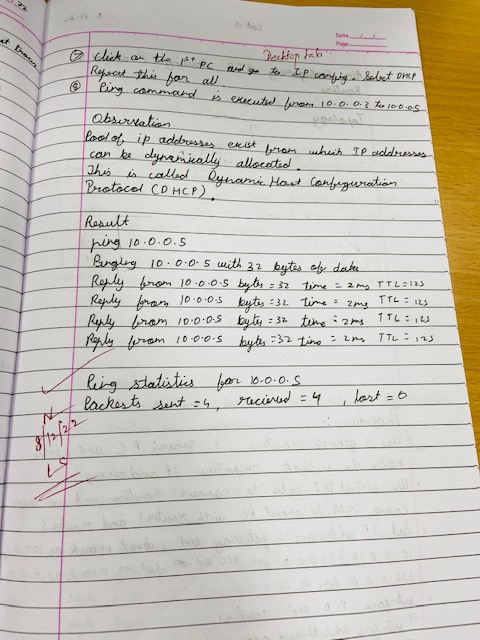 Date
Page
Desktop tab
⑦ Click on the 1st PC and go to IP config. Select DHCP
Repeat this for all.
⑧ Ping command is executed from 10.0.0.3 to 10.0.0.5
Observation
Pool of ip addresses exist from which IP addresses
can be dynamically allocated.
This is called Dynamic Host Configuration
Protocol (DHCP).
Result
ping 10.0.0.5
Pinging 10.0.0.5 with 32 bytes of data
Reply from 10.0.0.5 bytes=32 time=2ms TTL=125
Reply from 10.0.0.5 bytes=32 time=2ms TTL=125
Reply from 10.0.0.5 bytes=32 time=2ms TTL=125
Reply from 10.0.0.5 bytes=32 time=2ms TTL=125
Ping statistics for 10.0.0.5
Packests sent=4, recieved=4, lost=0
8/12/22